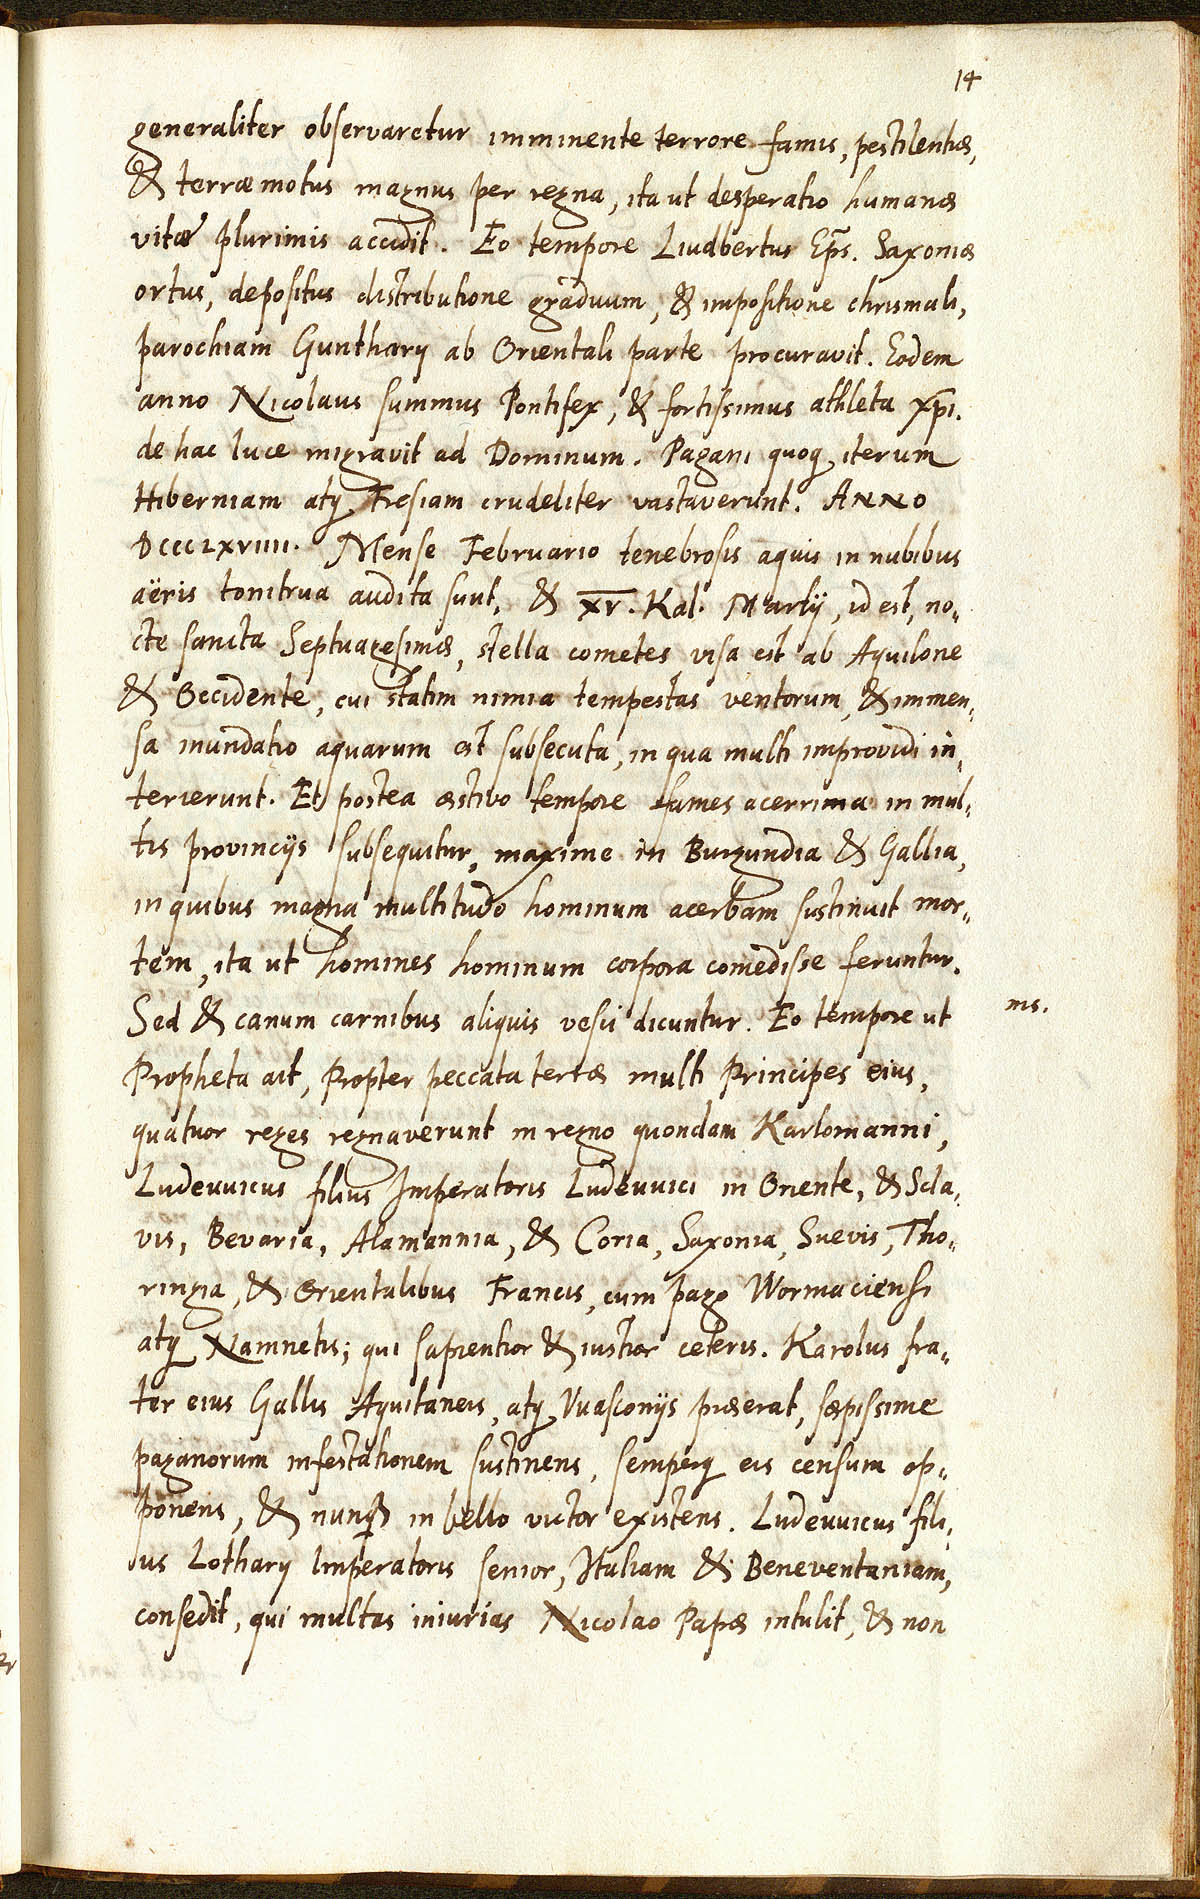 14
generaliter observaretur imminente terrore famis, pestilentiæ,
& terræmotus magnus per regna, ita ut desperatio humanæ
vitæ plurimis accidit. Eo tempore Liudbertus Ep̄s. Saxoniæ
ortus, depositus distributione graduum, & impositione chrismali,
parochiam Guntharij ab Orientali parte procuravit. Eodem
anno Nicolaus summus Pontifex, & fortissimus athleta Xp̄i.
de hac luce migravit ad Dominum. Pagani quoq; iterum
Hiberniam atq; Fresiam crudeliter vastaverunt. ANNO
DCCCLXVIIII. Mense Februario tenebrosis aquis in nubibus
aëris tonitrua audita sunt, & XV. Kal. Martij, id est, no-
cte sancta Septuagesimæ, stella cometes visa est ab Aquilone
& Occidente, cui statim nimia tempestas ventorum, & immen-
sa inundatio aquarum est subsecuta, in qua multi improvidi in-
terierunt. Et postea æstivo tempore fames acerrima in mul-
tis provincijs subsequitur, maxime in Burgundia & Gallia,
in quibus magna multitudo hominum acerbam sustinuit mor-
tem, ita ut homines hominum corpora comedisse feruntur.
Sed & canum carnibus aliquis vesci dicuntur. Eo tempore ut
ms.
Propheta ait, Propter peccata terræ multi Principes eius,
quatuor reges regnaverunt in regno quondam Karlomanni,
Ludeuuicus filius Imperatoris Ludeuuici in Oriente, & Scla-
vis, Bevaria, Alamannia, & Coria, Saxonia, Suevis, Tho-
ringia, & Orientalibus Francis, cum pago Wormaciensi
atq; Namnetis; qui sapientior & iustior ceteris. Karolus fra-
ter eius Gallis Aquitaneis, atq; Vuasconijs præerat, sæpissime
paganorum infestationem sustinens, semperq; eis censum op-
ponens, & nunq̄ in bello victor existens. Ludeuuicus fili-
us Lotharij Imperatoris senior, Italiam & Beneventaniam,
consedit, qui multas iniurias Nicolao Papæ intulit, & non